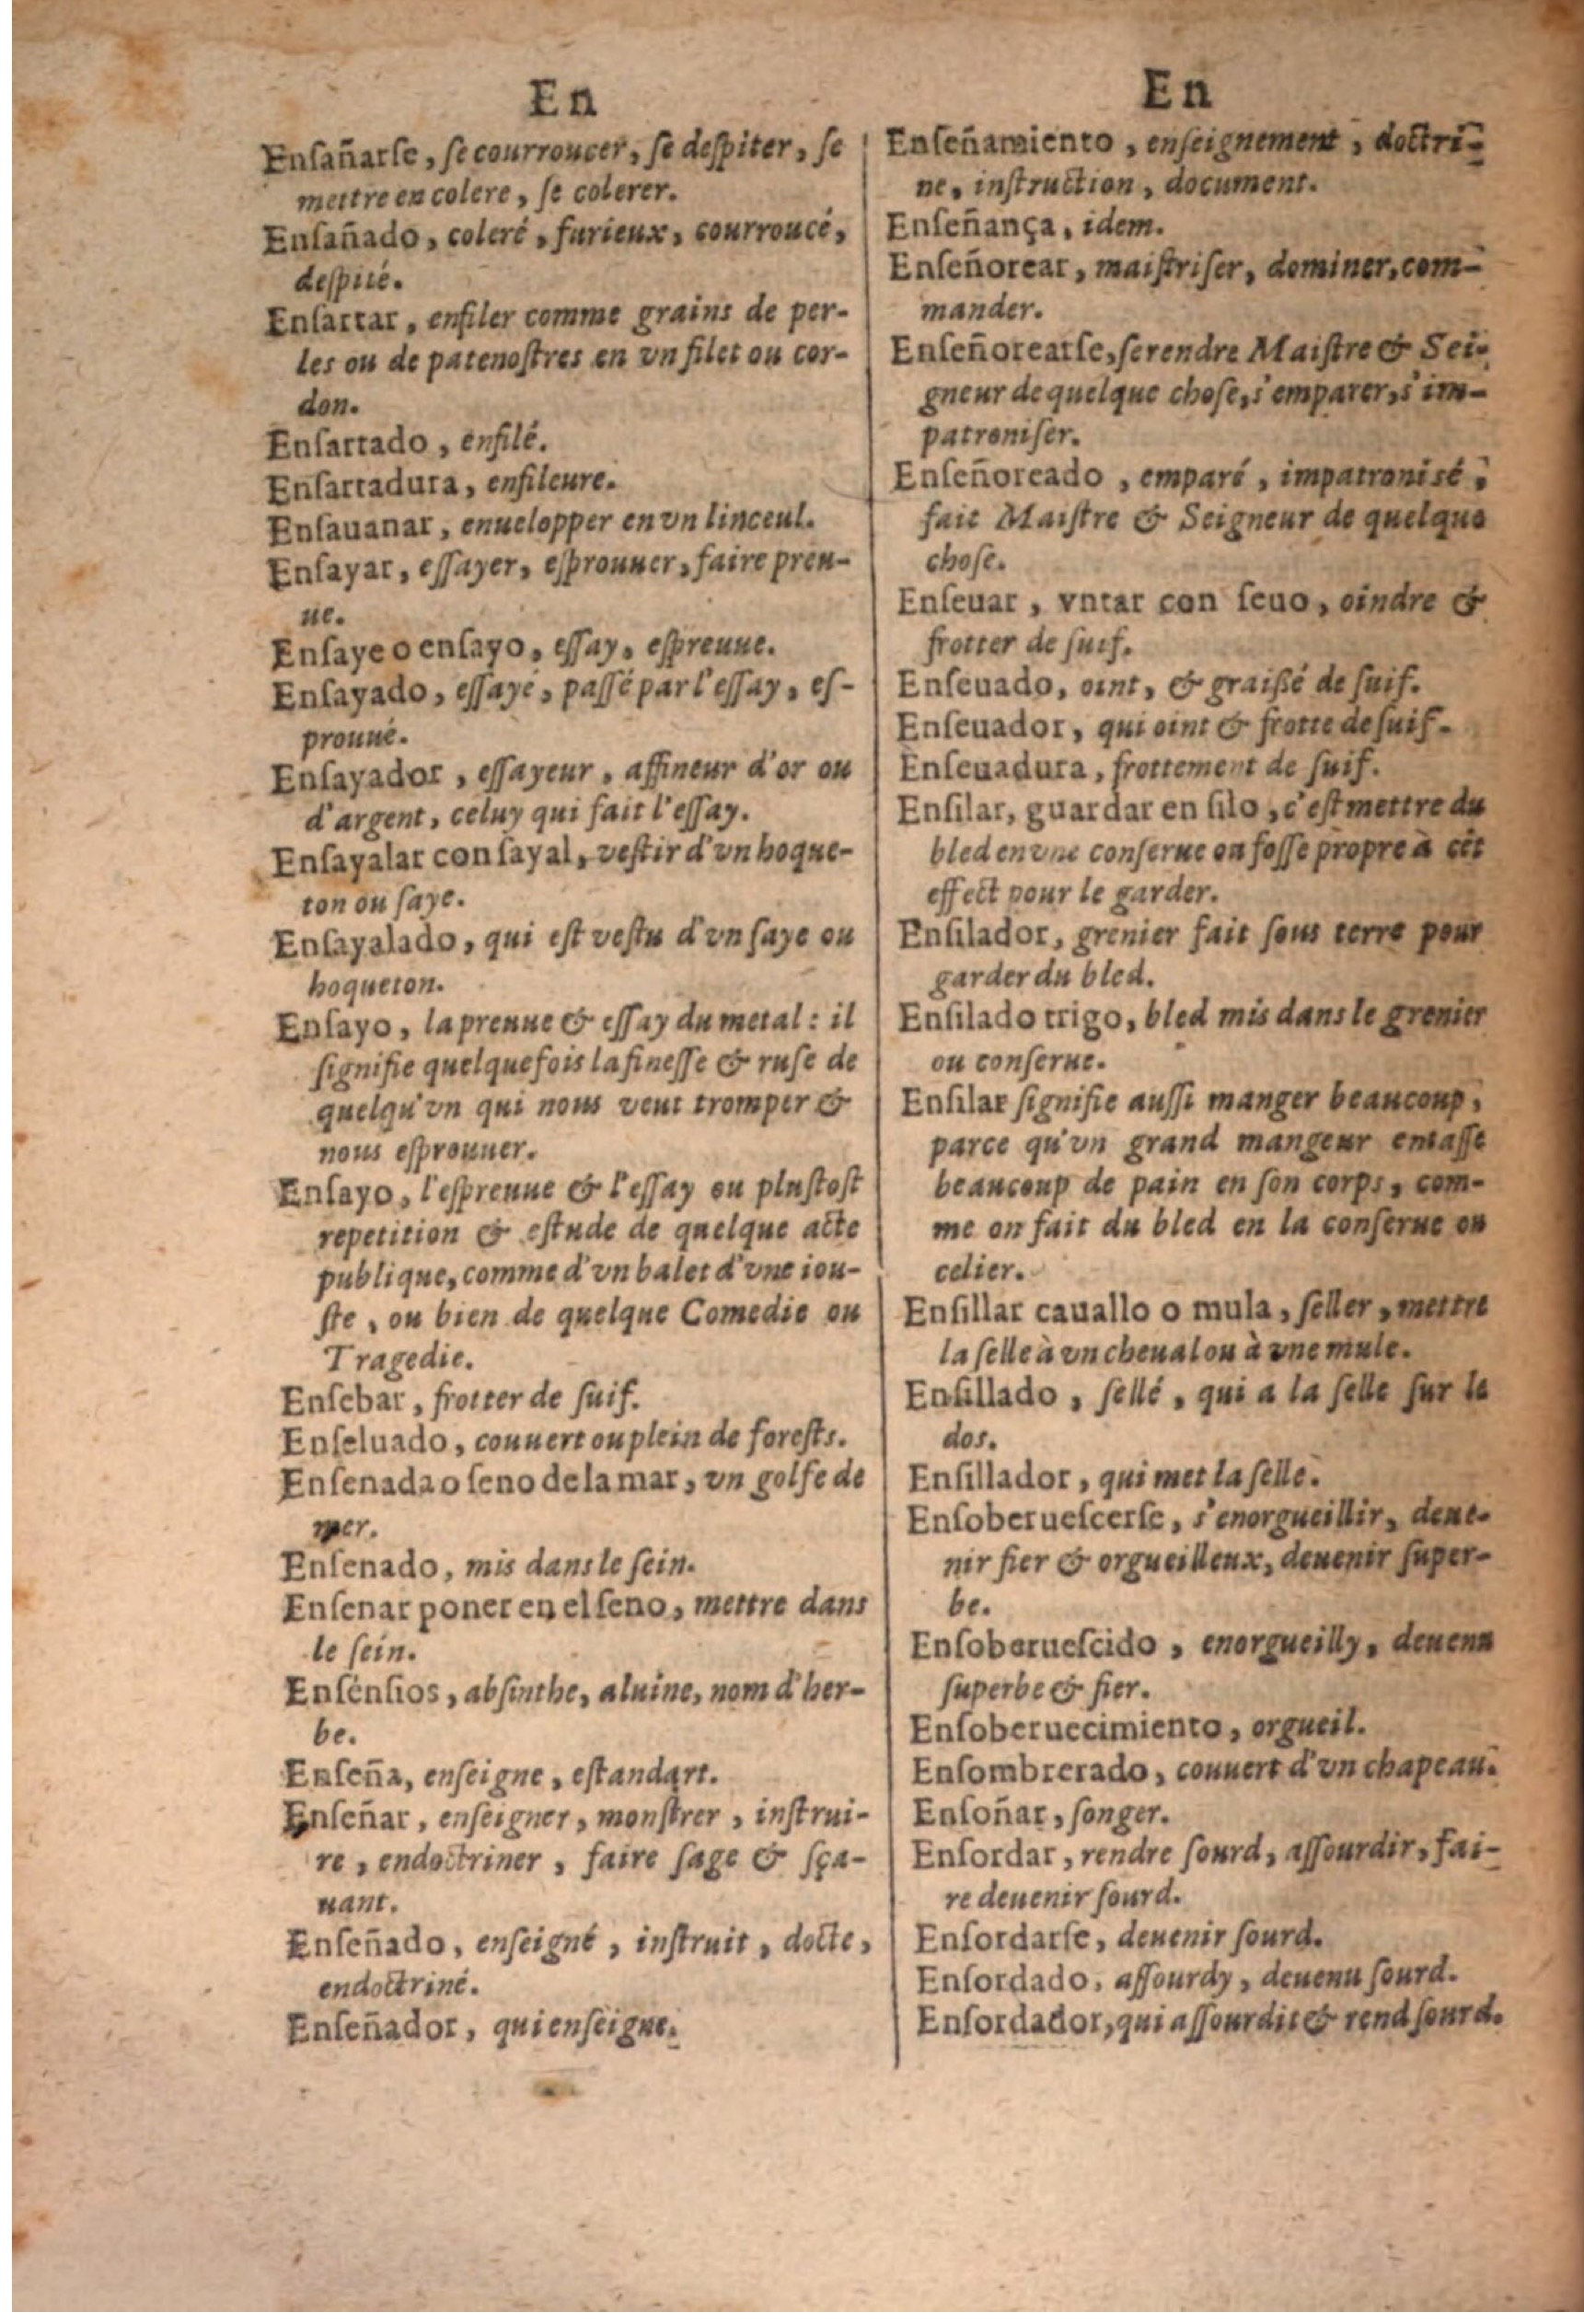 En
Enſañarſe, ſe courroucer, ſe deſpiter, ſe
mettre en colere, ſe colerer.
Enſañado, coleré, furieux, courroucé,
deſpité.
Enſartar, enfiler comme grains de per-
les ou de patenoſtres en vn filet ou cor-
don.
Enſartado, enfilé.
Enſartadura, enfileure.
Enſauanar, enuelopper en vn linceul.
Enſayar, eſſayer, eſprouuer, faire preu-
ue.
Enſaye o enſayo, eſſay, eſpreuue.
Enſayado, eſſayé, paſſé par l'eſſay, eſ-
prouué.
Enſayador, eſſayeur, affineur d'or ou
d'argent, celuy qui fait l'eſſay.
Enſayalar con ſayal, veſtir d'vn hoque-
ton ou ſaye.
Enſayalado, qui eſt veſtu d'vn ſaye ou
hoqueton.
Enſayo, la preuue & eſſay du metal: il
ſignifie quelquefois la fineſſe & ruſe de
quelqu'vn qui nous veut tromper &
nous eſprouuer.
Enſayo, l'eſpreuue & l'eſſay ou pluſtoſt
repetition & eſtude de quelque acte
publique, comme d'vn balet d'vne iou-
ſte, ou bien de quelque Comedie ou
Tragedie.
Enſebar, frotter de ſuif.
Enſeluado, couuert ou plein de foreſts.
Enſenada o ſeno de la mar, vn golfe de
mer.
Enſenado, mis dans le ſein.
Enſenar poner en el ſeno, mettre dans
le ſein.
Enſénſios, abſinthe, aluine, nom d'her-
be.
Enſeña, enſeigne, eſtandart.
Enſeñar, enſeigner, monſtrer, inſtrui-
re, endoctriner, faire ſage & ſça-
uant.
Enſeñado, enſeigné, inſtruit, docte,
endoctriné.
Enſeñador, qui enſeigne.
En
Enſeñamiento, enſeignement, doctri-
ne, inſtruction, document.
Enſeñança, idem.
Enſeñorear, maiſtriſer, dominer, com-
mander.
Enſeñorearſe, ſe rendre Maiſtre & Sei-
gneur de quelque choſe, s'emparer, s'im-
patroniſer.
Enſeñoreado, emparé, impatronisé,
fait Maiſtre & Seigneur de quelque
choſe.
Enſeuar, vntar con ſeuo, oindre &
frotter de ſuif.
Enſeuado, oint, & graißé de ſuif.
Enſeuador, qui oint & frotte de ſuif.
Enſeuadura, frottement de ſuif.
Enſilar, guardar en ſilo, c'eſt mettre du
bled en vne conſerue ou foſſe propre à cét
effect pour le garder.
Enſilador, grenier fait ſous terre pour
garder du bled.
Enſilado trigo, bled mis dans le grenier
ou conſerue.
Enſilar ſignifie auſſi manger beaucoup,
parce qu'vn grand mangeur entaſſe
beaucoup de pain en ſon corps, com-
me on fait du bled en la conſerue ou
celier.
Enſillar cauallo o mula, ſeller, mettre
la ſelle à vn cheual ou à vne mule.
Enſillado, ſellé, qui a la ſelle ſur le
dos.
Enſillador, qui met la ſelle.
Enſoberueſcerſe, s'enorgueillir, deue-
nir fier & orgueilleux, deuenir ſuper-
be.
Enſoberueſcido, enorgueilly, deuenu
ſuperbe & fier.
Enſoberuecimiento, orgueil.
Enſombrerado, couuert d'vn chapeau.
Enſoñar, ſonger.
Enſordar, rendre ſourd, aſſourdir, fai-
re deuenir ſourd.
Enſordarſe, deuenir ſourd.
Enſordado, aſſourdy, deuenu ſourd.
Enſordador, qui aſſourdit & rend ſourd.